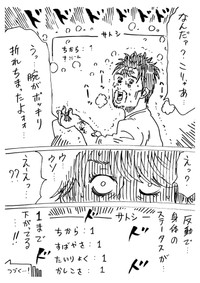 ドドドド
なんだァ？こりゃぁ…
サトシ
ちから：1
うっ…腕がポッキリ
折れちまったよォォ…
ハァーッ
ハァーッ
えっ？
ウソ
ええっ…
？？…
反動で…
身体の
ステータスが…
ドドド
サトシー
ちから：1
すばやさ：1
たいりょく：1
かしこさ：1
1まで
下がってる…
!!
つづく…!